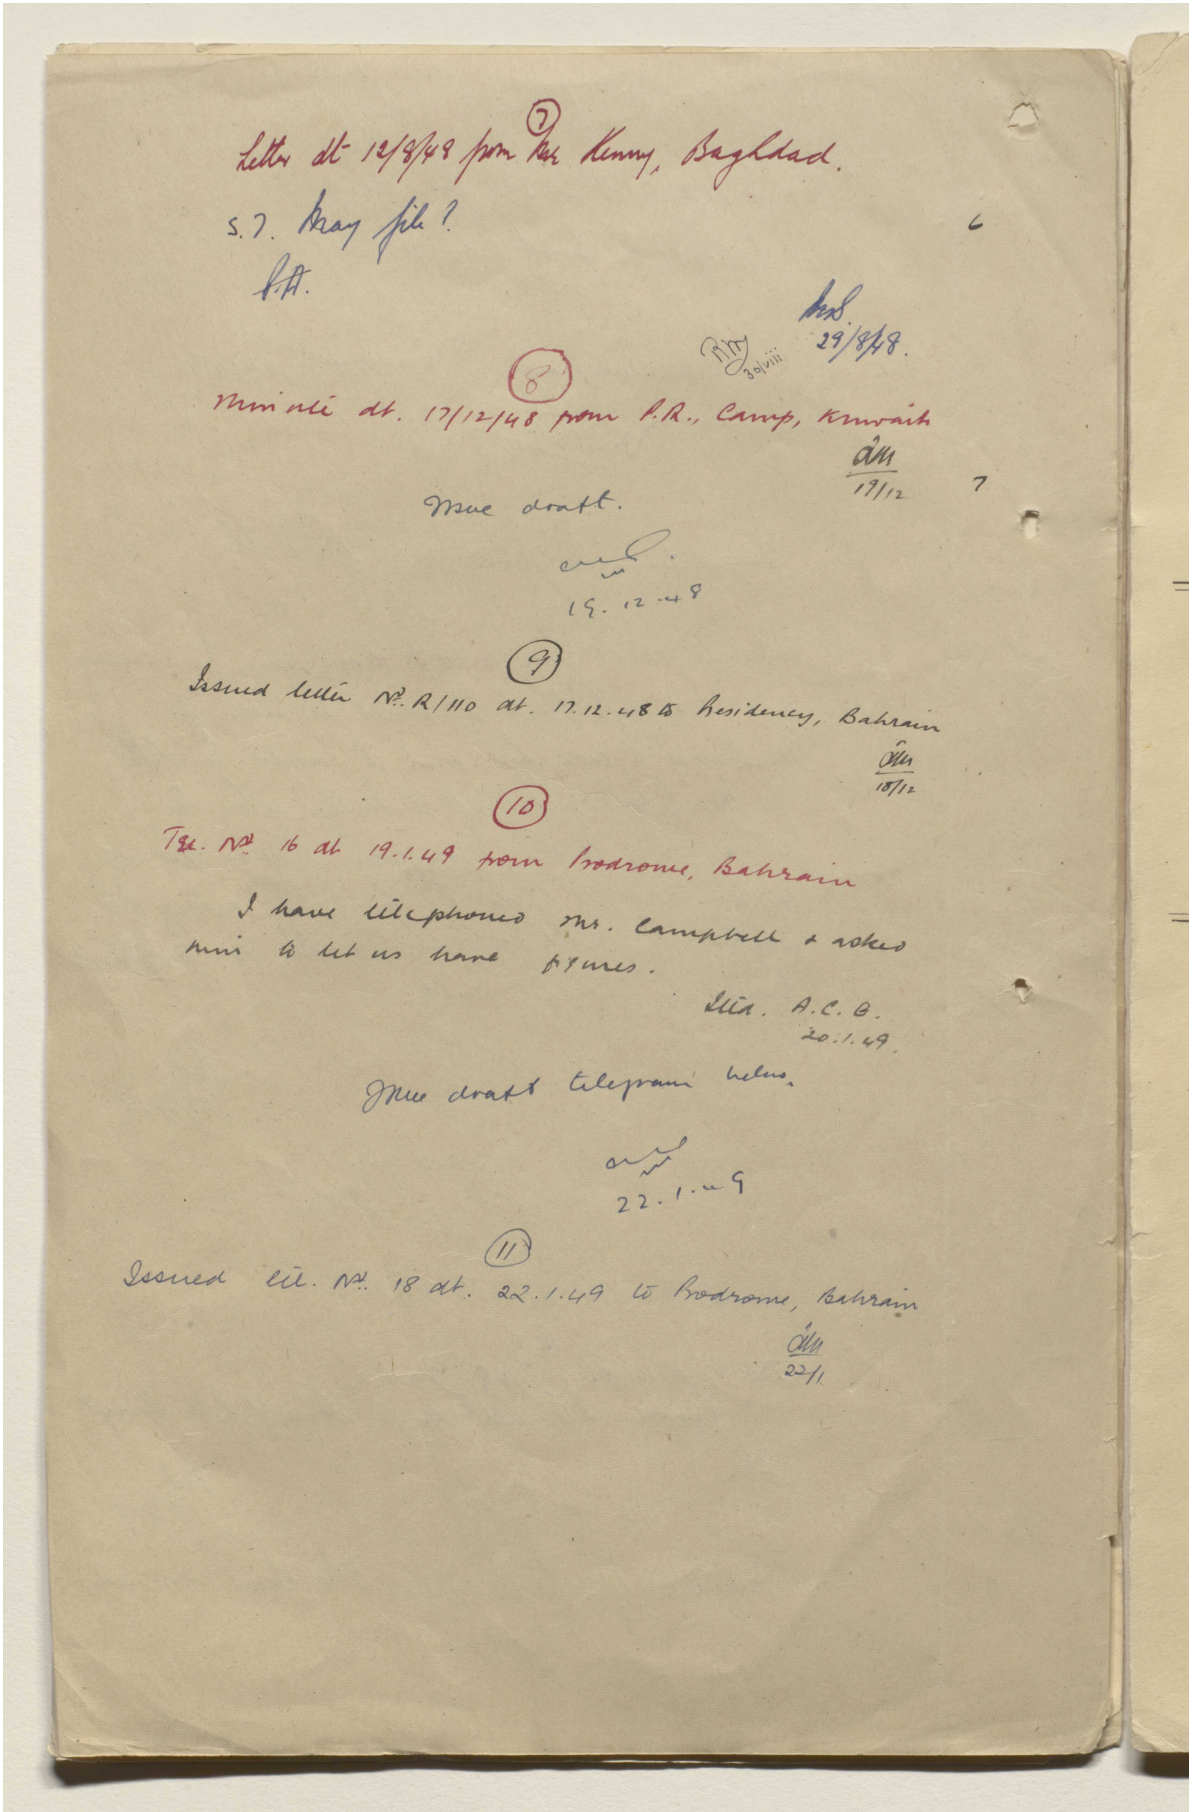 7
Letter dt 12/8/48 from Mr Kenny, Baghdad.
S.7. May file?
6
P.A.
29/8/48.
30/viii
8
Minute dt. 17/12/48 from P.R., Camp, Kuwait
19/12
7
draft.
19.12.48
9
Issued letter No. R/110 dt. 17.12.48 to Residency, Bahrain
18/12
10
Tel. No. 16 dt 19.1.49 from Prodrome, Bahrain
I have telephoned Mr. Campbell & asked
him to let us have figures.
Itld. A.C.G.
20.1.49.
draft telegram below.
22.1.49
11
Issued tel. No. 18 dt. 22.1.49 to Prodrome, Bahrain
22/1